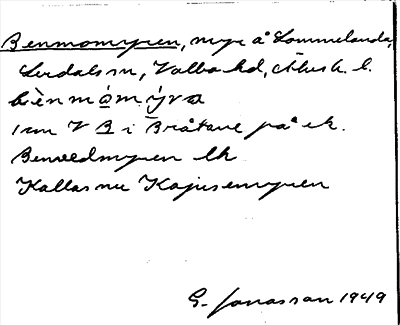 Benmomyren, myr å Lommelanda,
Lerdals sn, Valbo hd, Älvsb. l.
bènmómýra
1 km V B i Bråtane på ek.
Benvedmyren lk
Kallas nu Kajsemyren
G. Jonasson 1949